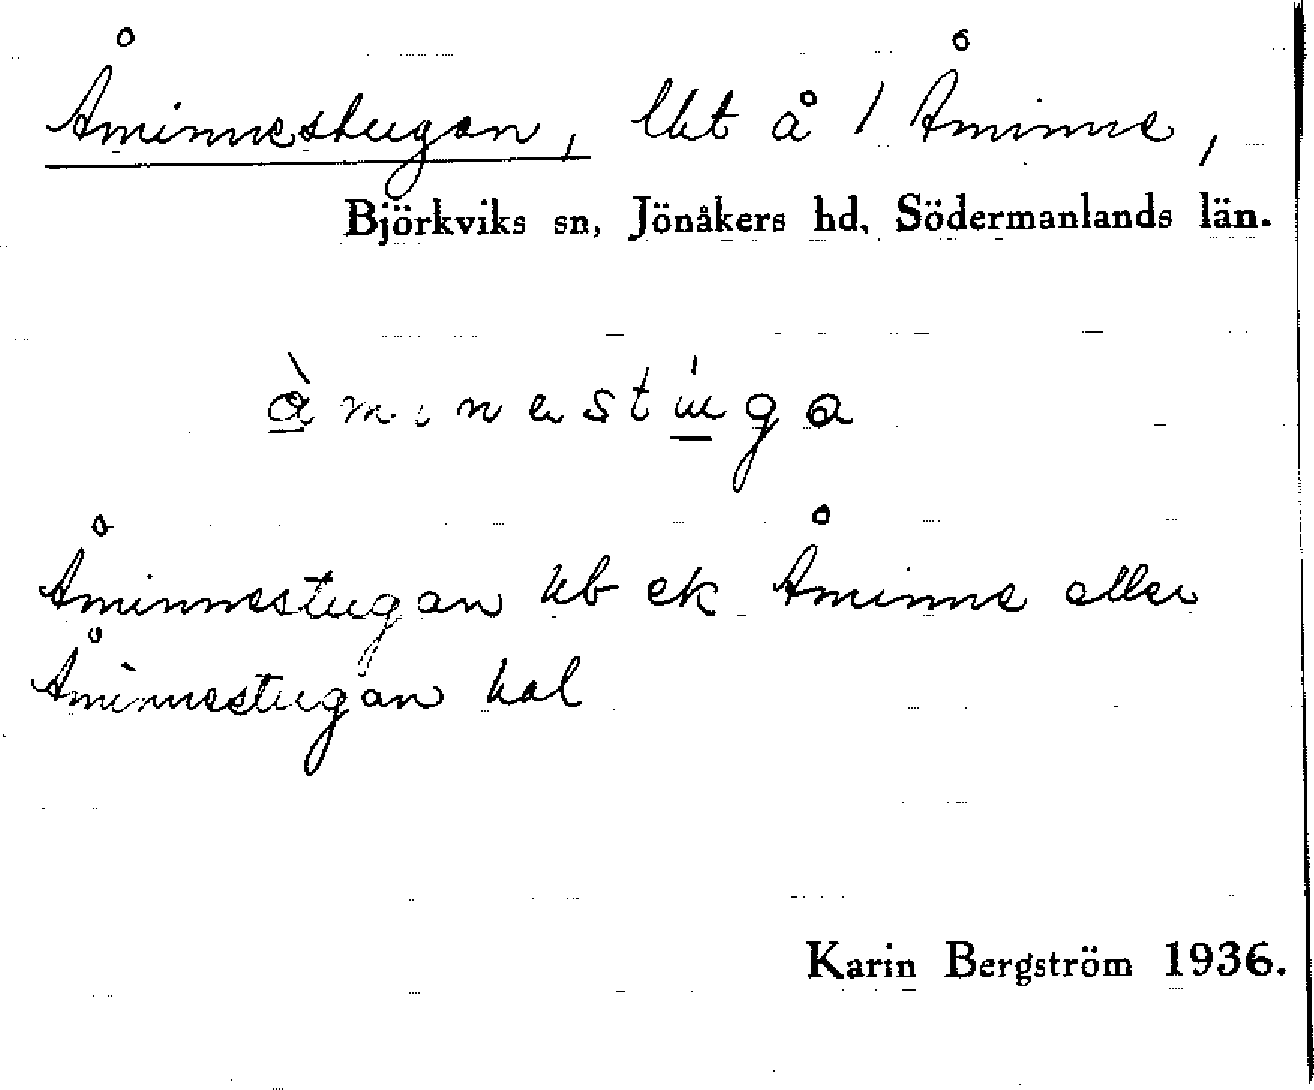 Åminnestugan, lht å 1 Åminne,
Björkviks sn, Jönåkers hd, Södermanlands län.
Åminnestugan hb ek Åminne eller
Åminnestugan hal
Karin Bergström 1936.